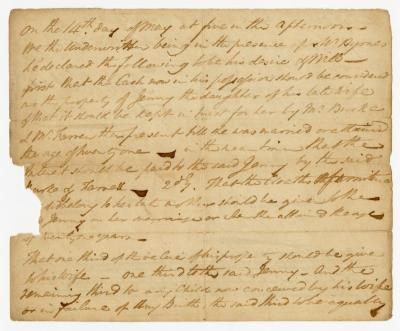 On the 14th day of May at five in the afternoon
We the underwritten being in the presence of Wm
declared the following to be his desire & Will
first that the Cash now in his possession should be considered
as the property of Jenny the daughter of his late wife
& that it should be kept in trust for her by Mr Burke
& Mr Farrell the present till she was married or attained
the age of twenty one — in the mean time that the
interest should be paid to the said Jenny by the said
Burke & Farrell — 2dly. That the cloaths & furniture
belong to her late mother should be give to the
Jenny on her marriage or when she attained the age
of twenty one years —
That one third of the value of his property should be give
to his wife — one third to the said Jenny — And the
remaining third to any Child now conceived by his wife
or in failure of Any Birth the said third to be equally